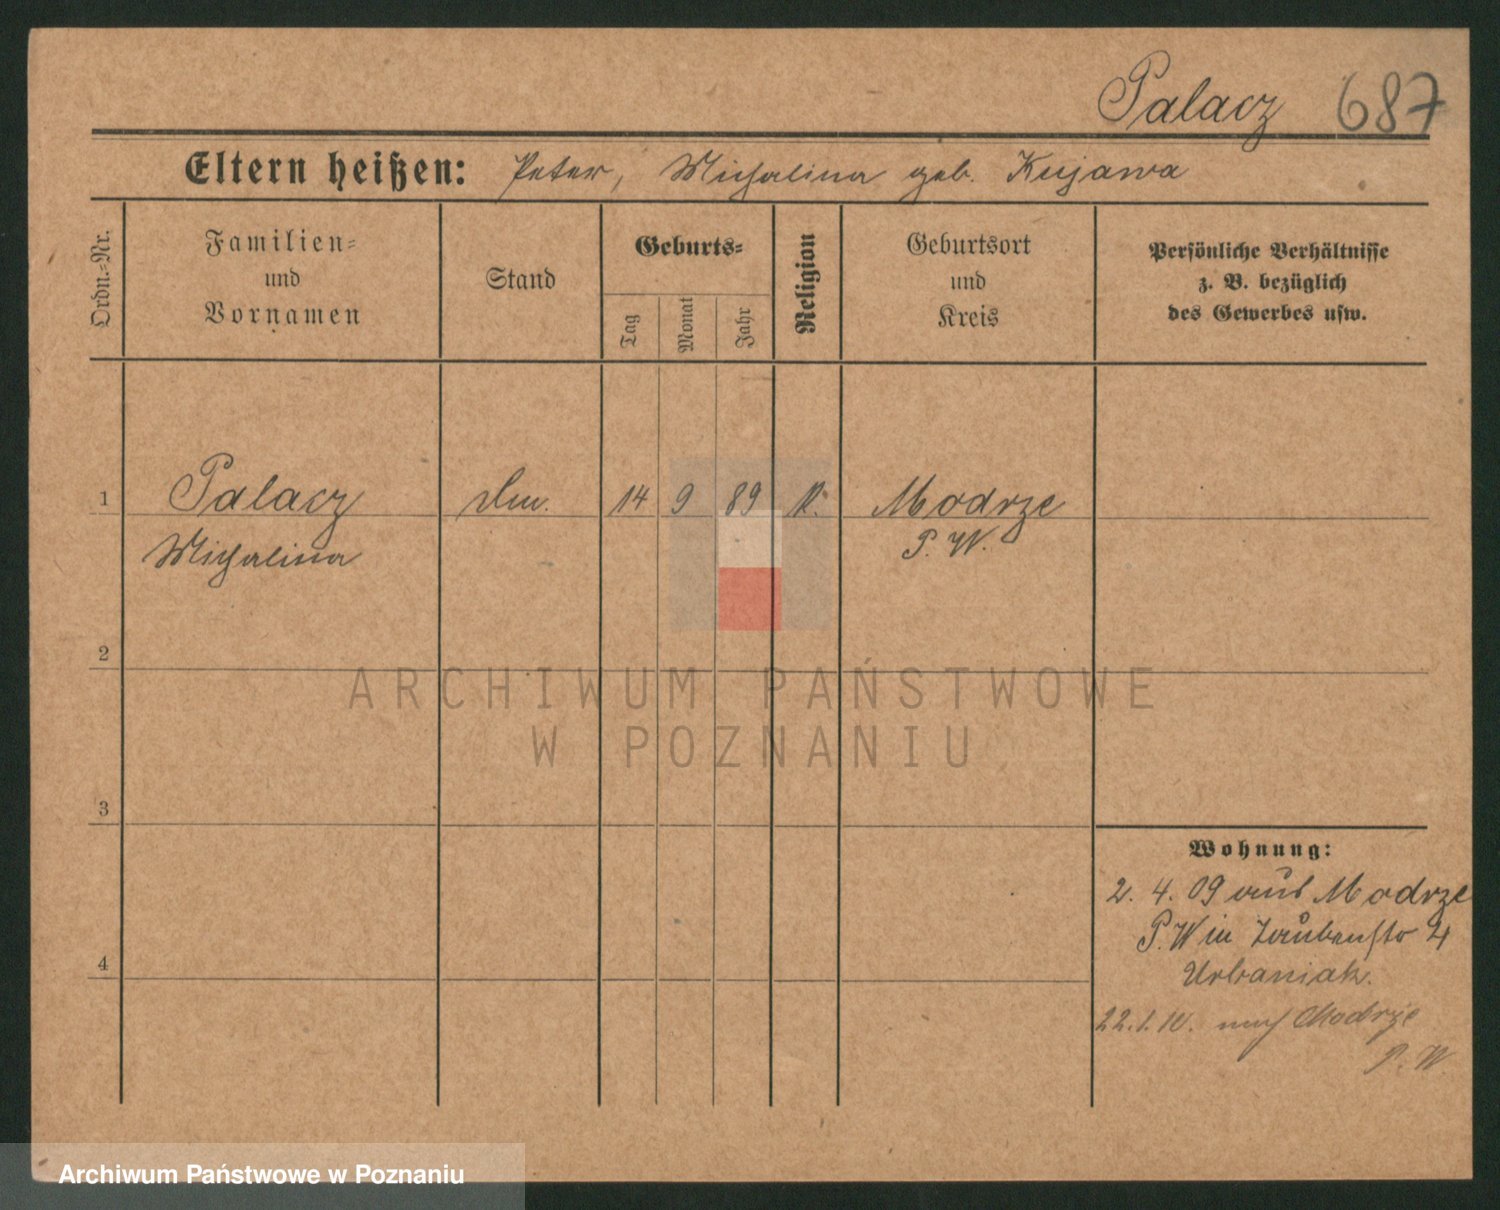 Palacz 687
Eltern heißen: Peter, Michalina geb. Kujawa
Ordn.-Nr.
Familien-
und
Vornamen
Stand
Geburts-
Tag
Monat
Jahr
Religion
Geburtsort
und
Kreis
Persönliche Verhältnisse
z. B. bezüglich
des Gewerbes usw.
1 Palacz 14 9 89 K. Modrze
Michalina P. W.
2
3
4
Wohnung:
2. 4. 09 aus Modrze
P. W in Taubenstr 4
Urbaniak.
22.1.10. nach Modrze
P. W.
ARCHIWUM PAŃSTWOWE
W POZNANIU
Archiwum Państwowe w Poznaniu